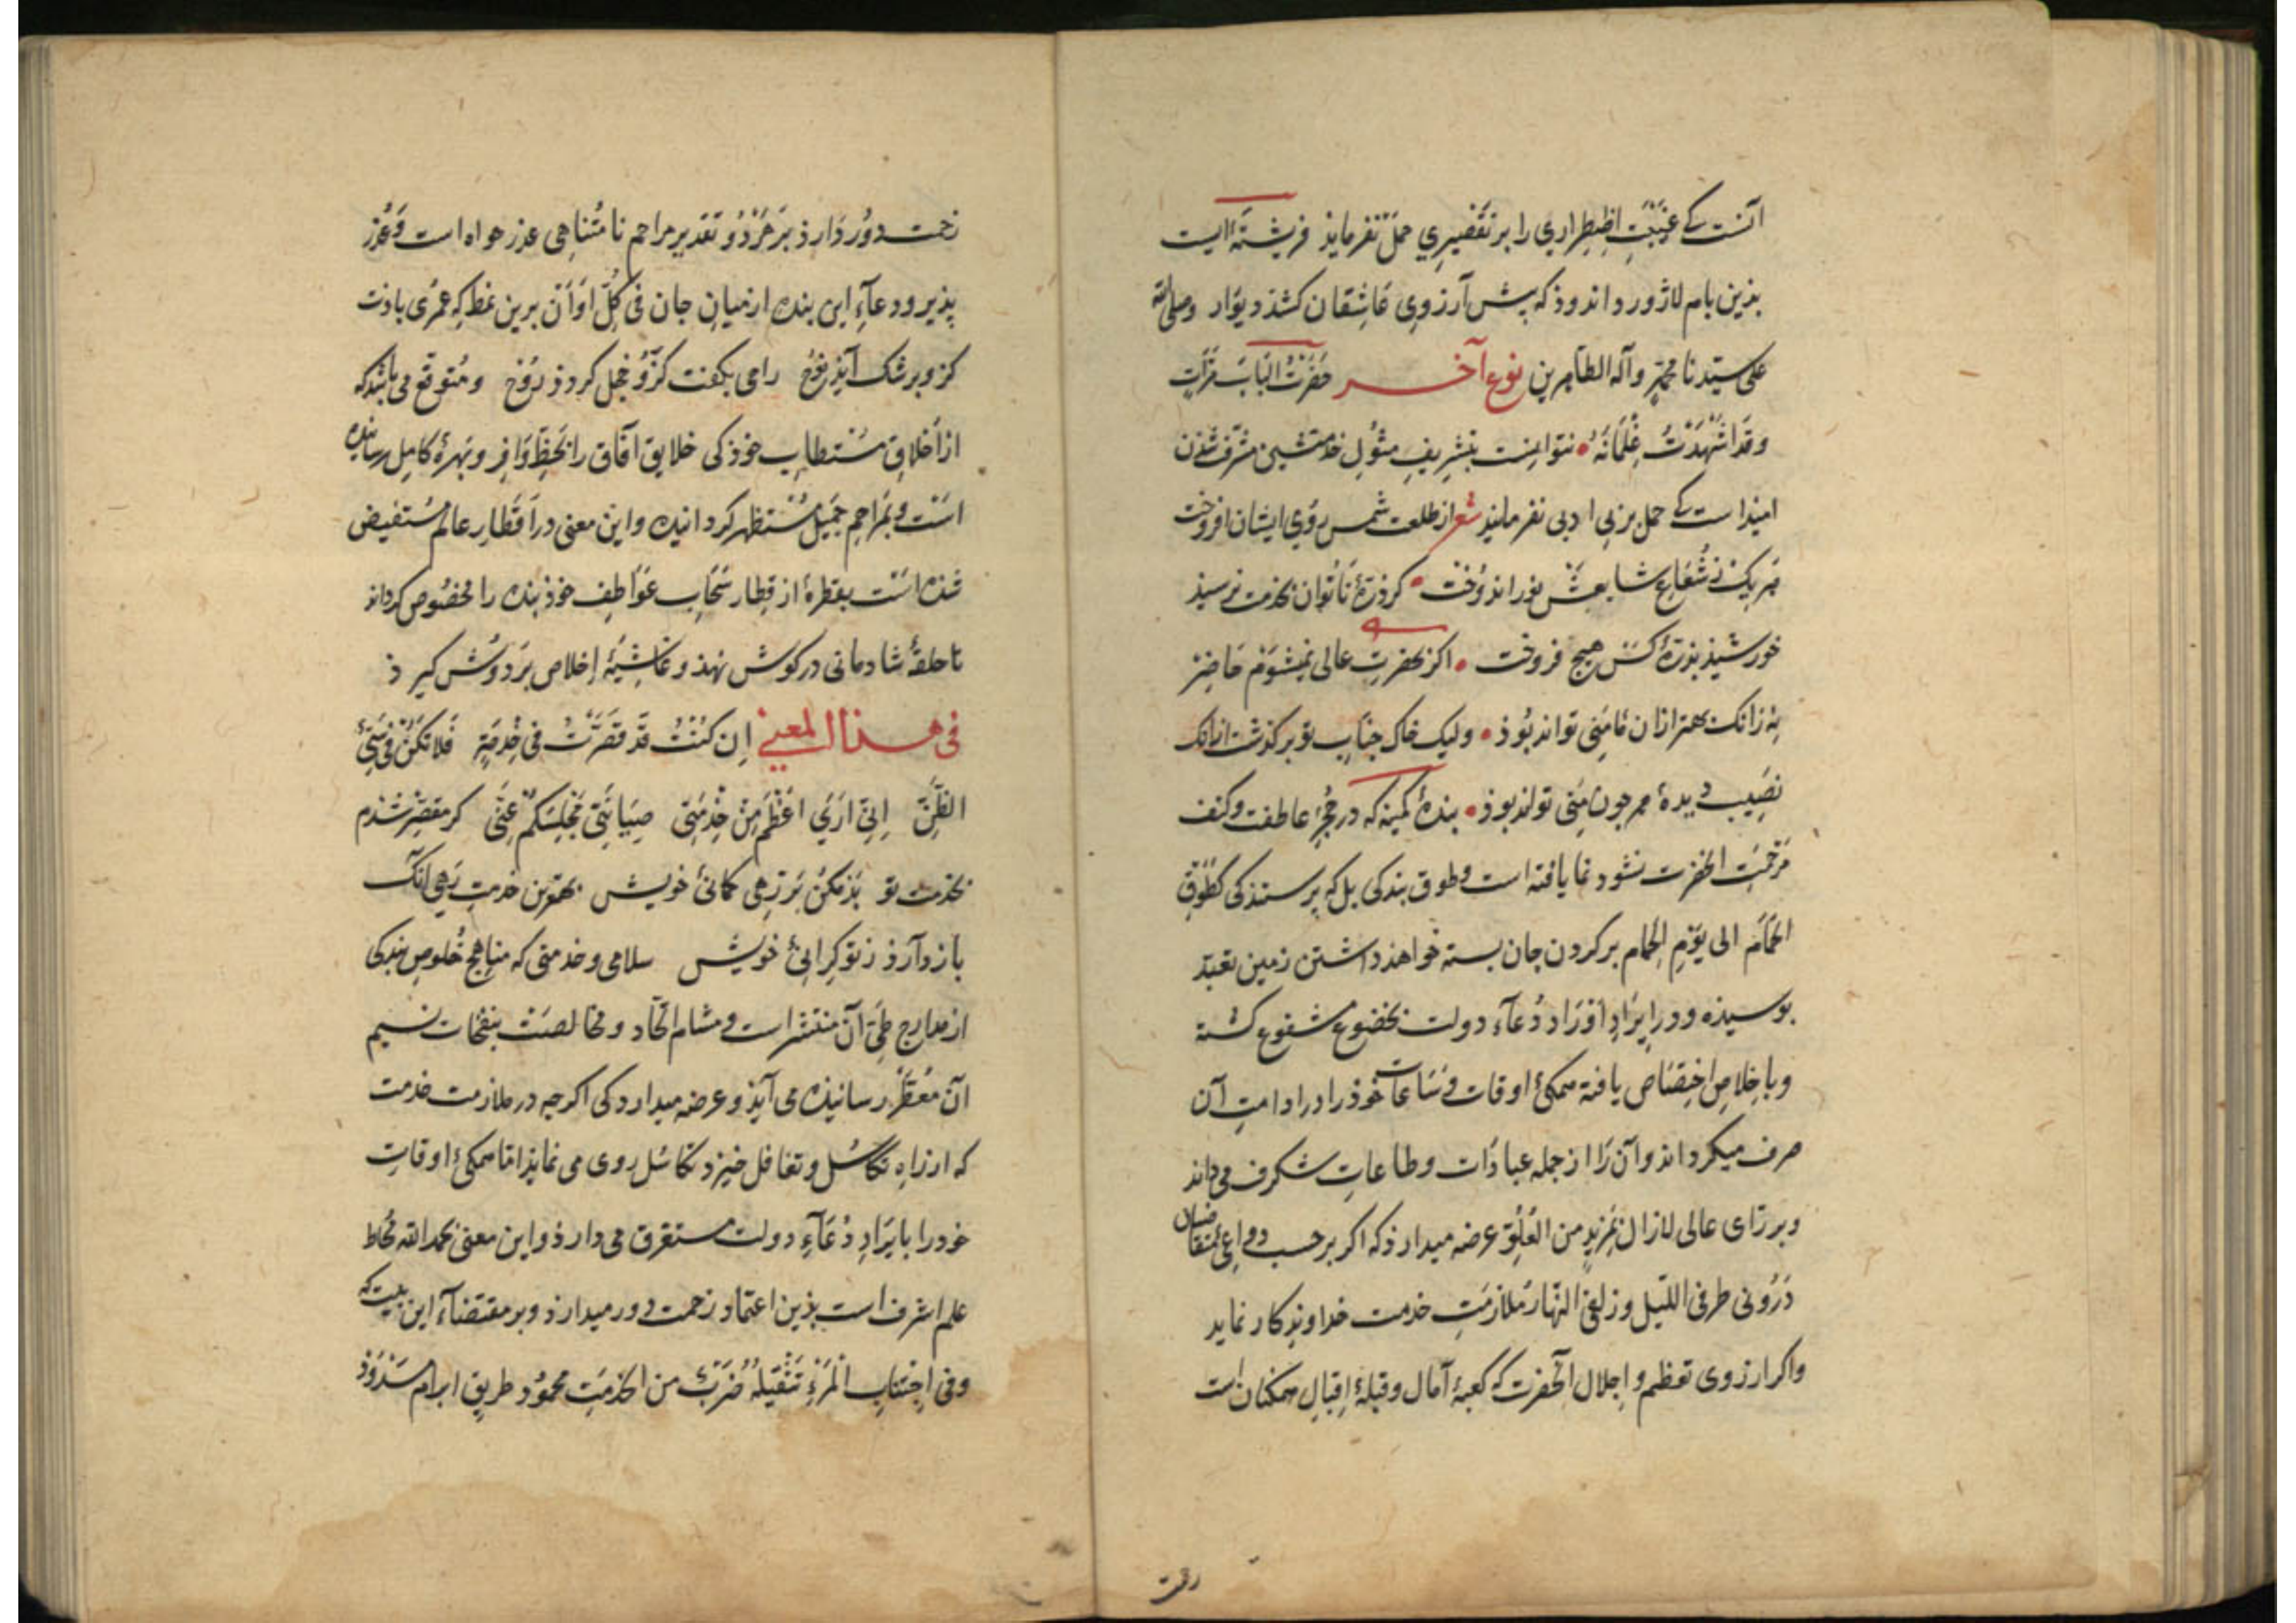 آنست که غیبت اضطراری را بر تقصیری حمل نفرماید فریشتهٔ است
بذین بام لاژورد اندوذ که پیش آرزوی عاشقان کشذ دیوار وصلی الله
علی سیدنا محمد وآله الطاهرین نوع آخر حضرت الباب
وقد اشهدت غلمانه نتوانست بتشریف مثول خدمتش مشرف شذن
امیذ است که حمل بر بی ادبی نفرمایذ شعر از طلعت شمس روی ایشان افروخت
هر یک ز شعاع نور اندوخت کر ذرهٔ ناتوان بخدمت نرسیذ
خورشیذ بذرهٔ کسش هیچ فروخت اکر بحضرت عالی نمیشوم حاضر
به زانک بهتر ازان مامنی تواند بوذ ولیک خاک جناب تو برکذشت ازانک
نصیب دیدهٔ همچون منی تواند بوذ بندهٔ کمینه که در حجر عاطفت وکنف
مرحمت آنحضرت نشو ونما یافته است وطوق بندکی بل که پرستندکی کطوق
الحمام الی یوم الحمام بر کردن جان بسته خواهذ داشتن زمین تعبد
بوسیذه ودر ایراد اوراد دعاء دولت بخضوع مشفوع کشته
وباخلاص اختصاص یافته همکی اوقات وساعات خوذ را در ادامت آن
صرف میکرداند وآن را از جمله عبادات وطاعات شکرف می داند
وبر رای عالی لازال بمزید من العلو عرضه میدارذ که اکر بر حسب دواعی
درونی طرفی اللیل وزلفی النهار ملازمت خدمت خداوندکار نماید
واکر ارزوی تعظیم واجلال آنحضرت که کعبهٔ آمال وقبلهٔ اقبال همکنان است
رحمت
زحمت دور دارذ بر هر دو تقدیر مراحم نامتناهی عذر خواه است وعذر
پذیر ودعاء این بنده از میان جان فی کل اوان برین نمط که عمری بادت
کزو برشک آیذ نوح رامی بکفت کزو خجل کردذ روح ومتوقع می باشد که
از اخلاق مستطاب خوذ کی خلایق آفاق را بحظ وافر وبهرهٔ کامل رسانیده
است وبمراحم جمیل مستظهر کردانیده واین معنی در اقطار عالم مستفیض
شده است بقطرهٔ از قطار سحاب عواطف خوذ بنده را مخصوص کرداند
تا حلقهٔ شادمانی در کوش نهذ وغاشیهٔ اخلاص بر دوش کیرذ
فی هذا المعنی ان کنت قد قصرت فی خدمة فلا تکن فی سیئ
الظن انی اری اعظم من خدمتی صیانتی مجلسکم عنی کر مقصر شدم
بخدمت تو بذ مکن بر رهی کمانی خویش بهترین خدمت رهی آنک
باز دارذ ز تو کرانی خویش سلامی وخدمتی که مناهج خلوص بندکی
از مدارج طی آن منتشر است ومشام اتحاد ومخالصت بنفحات نسیم
آن معطر رسانیده می آیذ وعرضه میدارد کی اکرچه در ملازمت خدمت
که از راه تکاسل وتغافل خیزد تکاسل روی می نمایذ اما همکی اوقات
خود را بایراد دعاء دولت مستغرق می دارذ واین معنی بحمد الله محاط
علم اشرف است بذین اعتماد زحمت دور میدارذ وبر مقتضاء این بیت که
وفی اجتناب المرء تثقیله ضرب من الخدمت محمود طریق ابرام